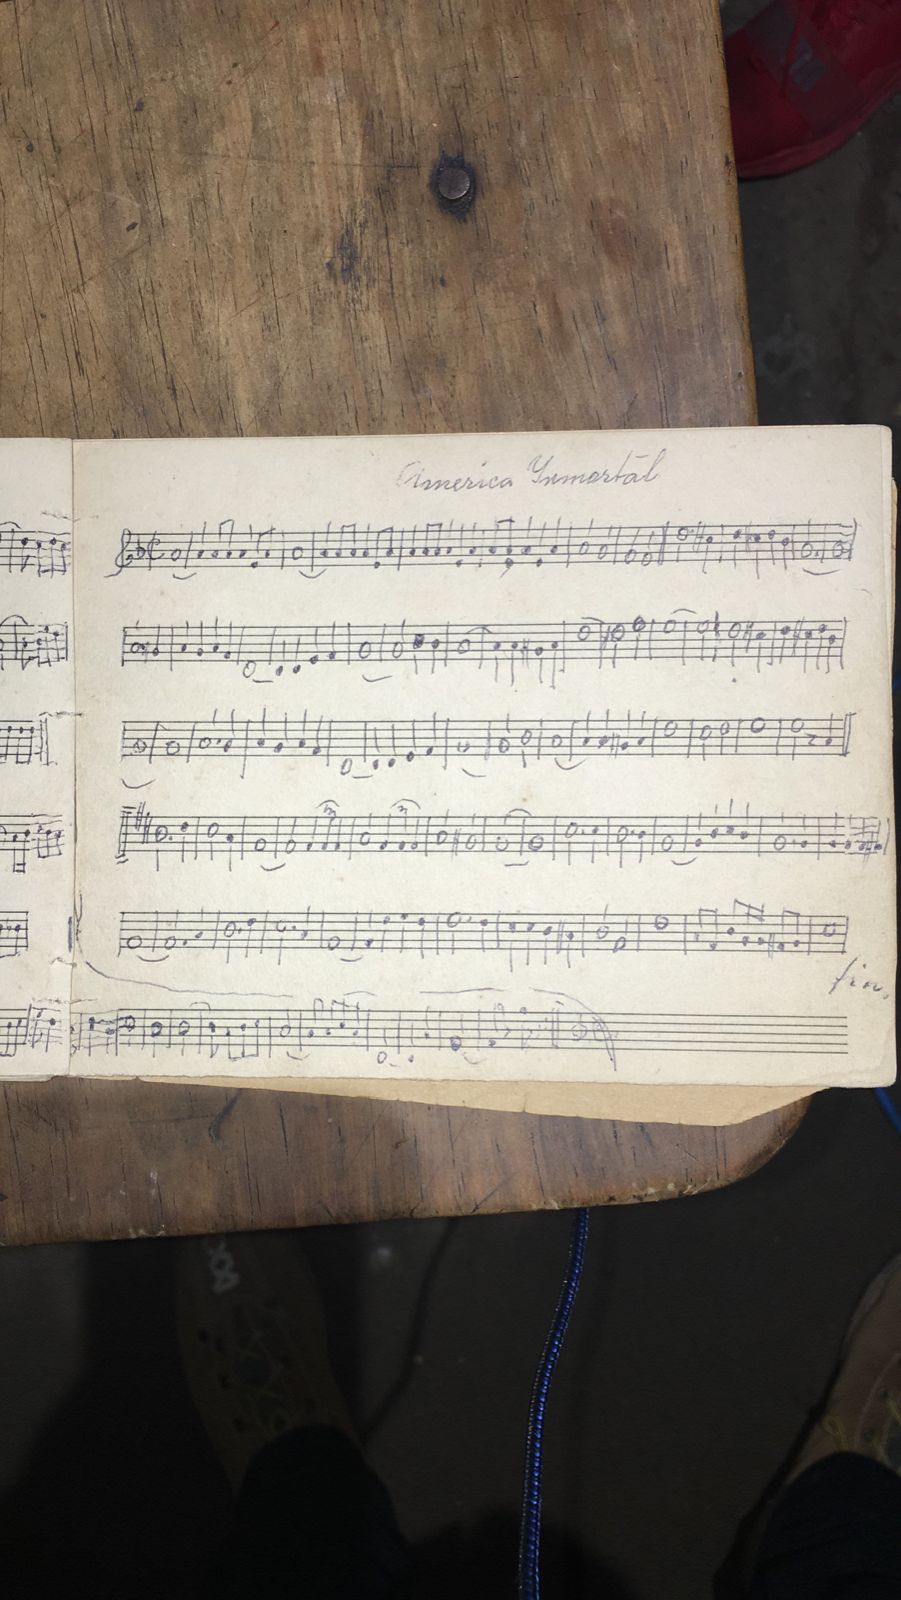 America Ynmortāl
fin.